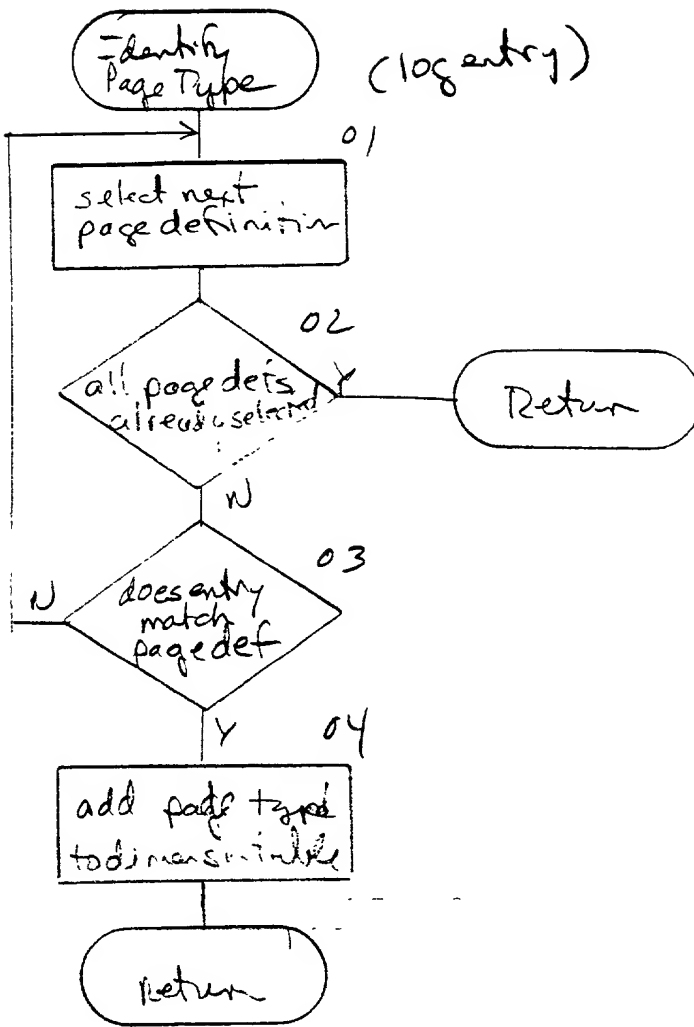 Identify
Page Type
(log entry)
01
select next
page definition
02
all page defs
already selected
Y
Return
N
03
does entry
match
page def
N
Y
04
add page type
to
Return